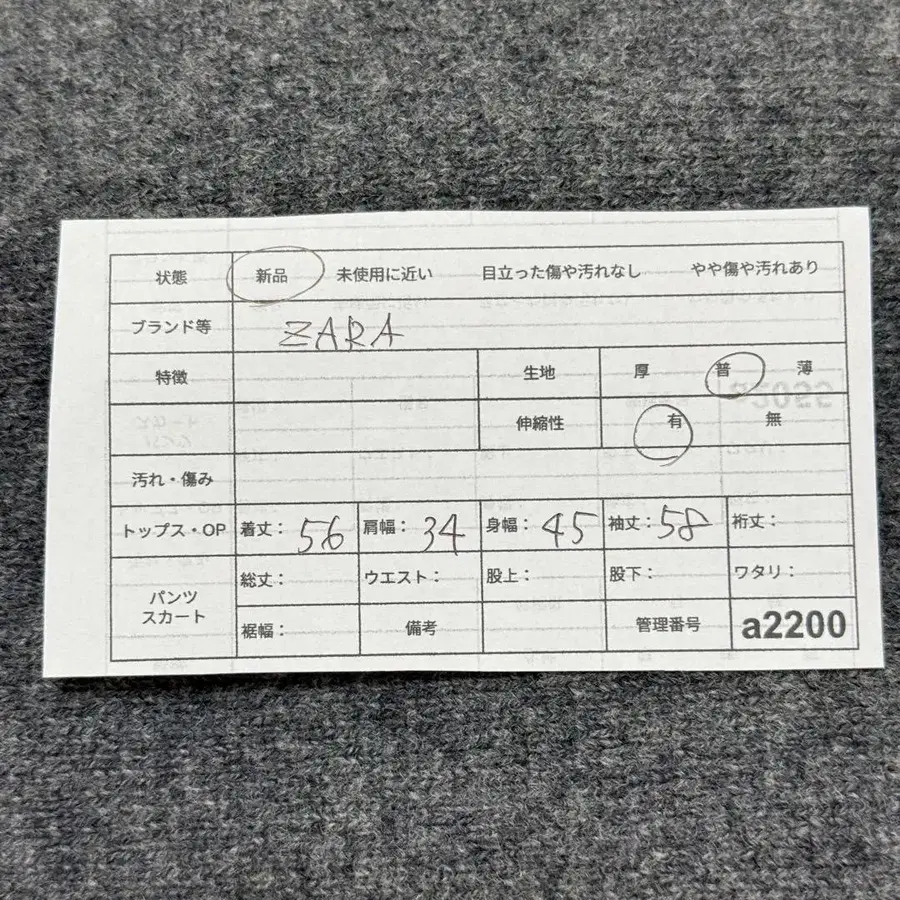 状態 新品 未使用に近い 目立った傷や汚れなし やや傷や汚れあり
ブランド等 ZARA
特徴 生地 厚 普 薄
伸縮性 有 無
汚れ・傷み
トップス・OP 着丈: 56 肩幅: 34 身幅: 45 袖丈: 58 裄丈:
パンツ スカート 総丈: ウエスト: 股上: 股下: ワタリ:
裾幅: 備考 管理番号 a2200